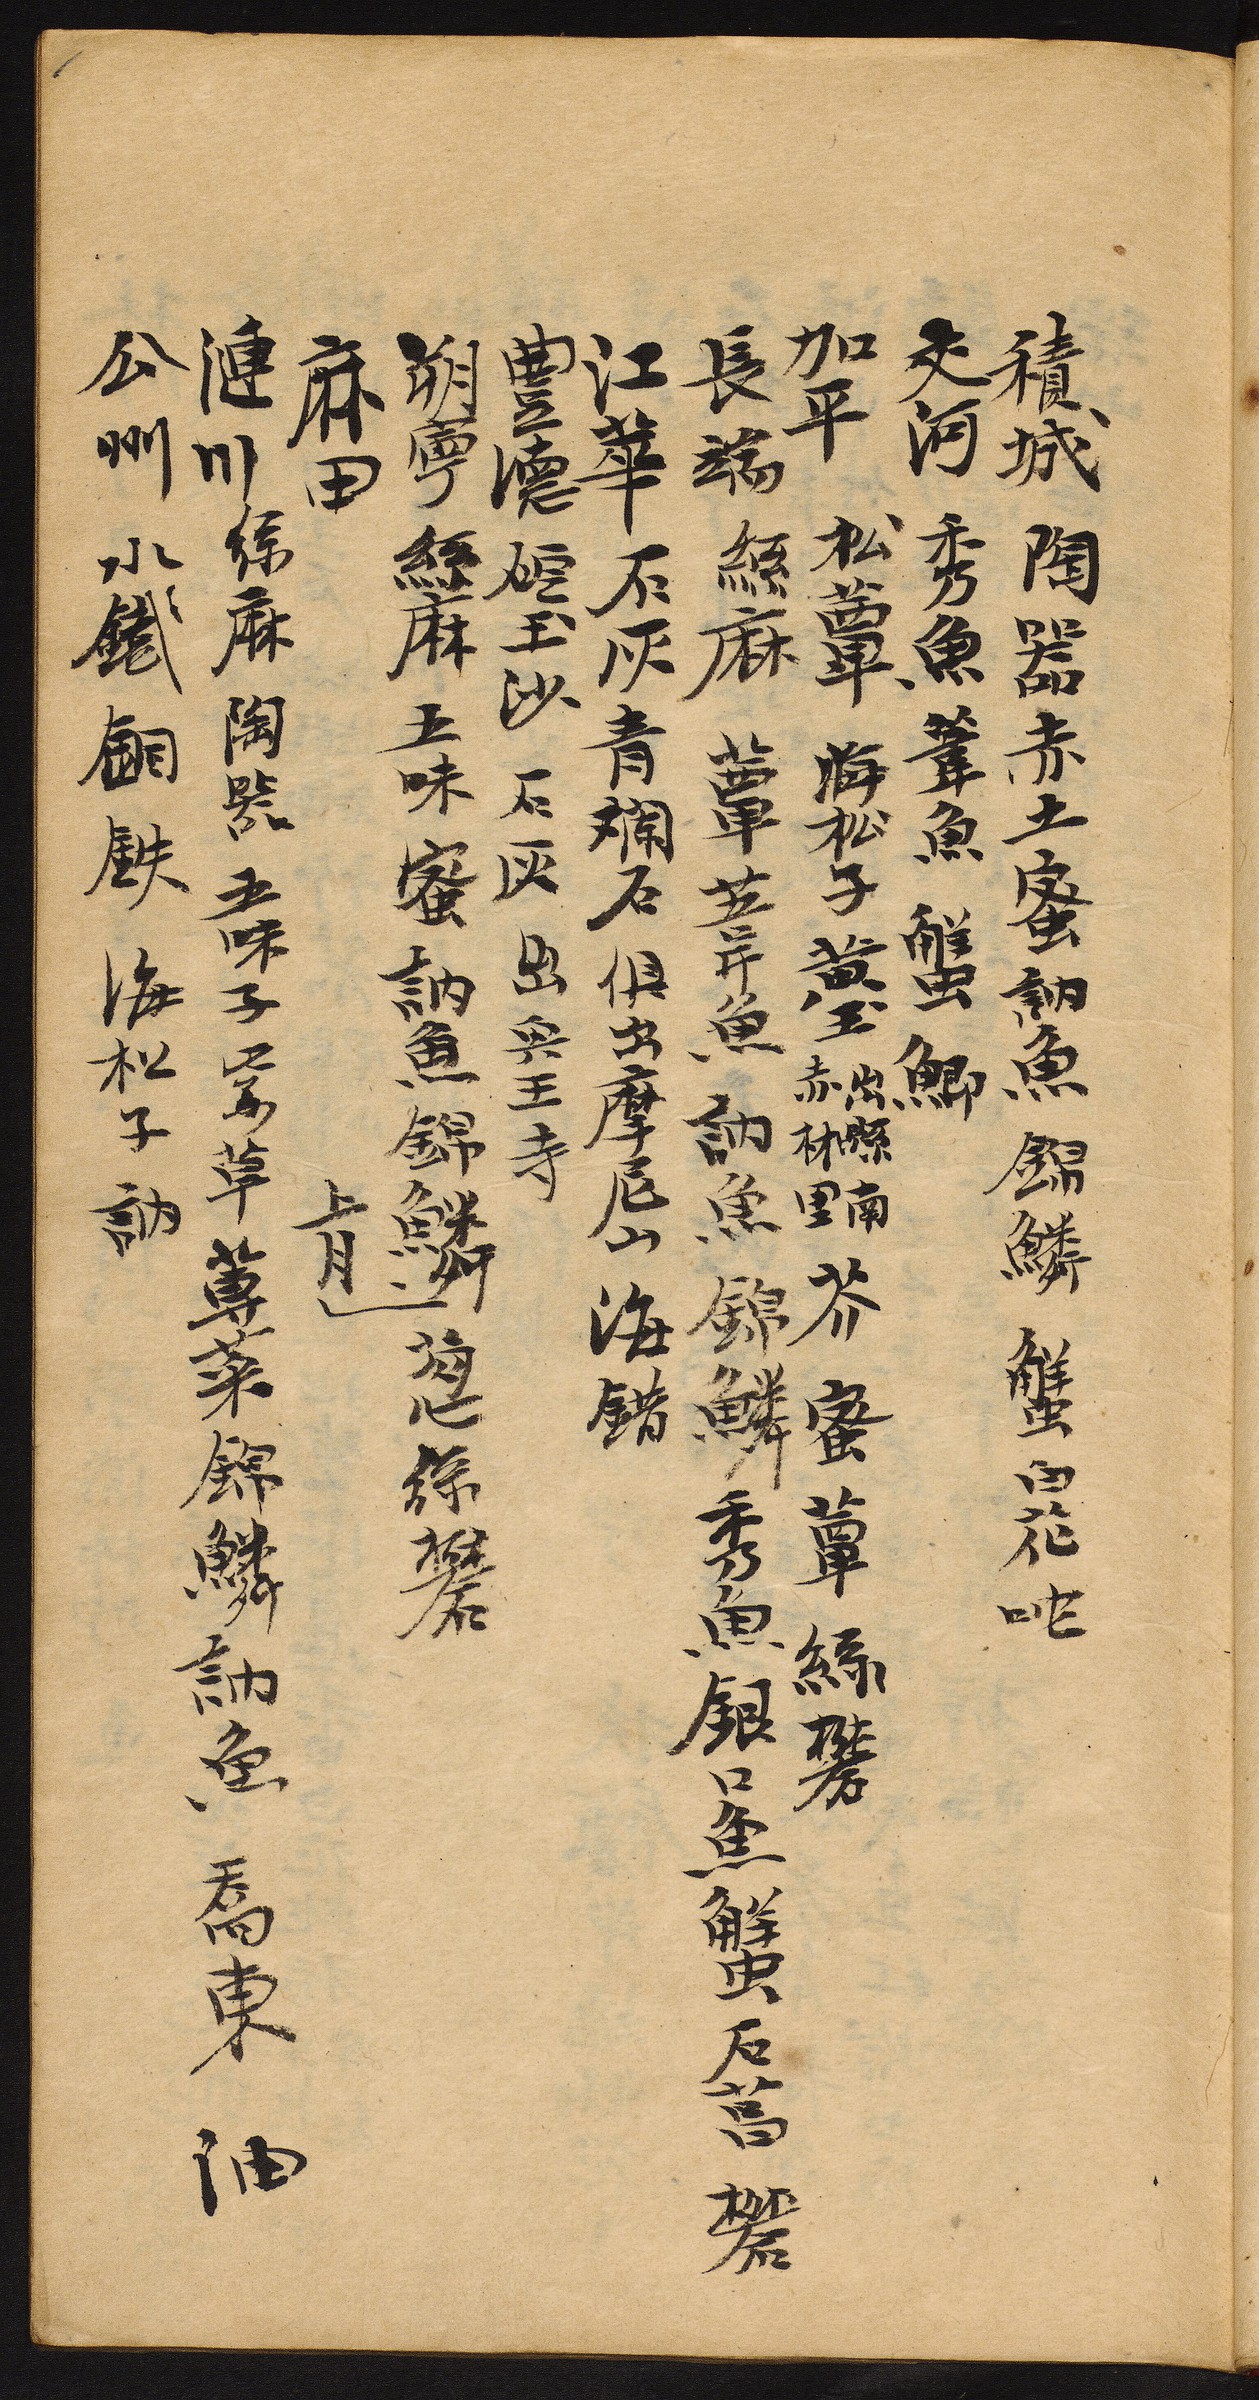 積城 陶器 赤土 蜜 訥魚 錦鱗 蟹 白花蛇
交河 秀魚 葦魚 蟹 鯽
加平 松蕈 海松子 黃玉 出縣南赤林里 芥 蜜 蕈 絲 礬
長湍 絲 麻 蕈 葦魚 訥魚 錦鱗 秀魚 銀口魚 蟹 石菖 礬
江華 石灰 青爛石 俱出摩尼山 海錯
豊德 碇玉沙 石灰 出興王寺
朔寧 絲 麻 五味 蜜 訥魚 錦鱗 葱 絲 礬
麻田 上月
漣川 絲 麻 陶器 五味子 紫草 蓴菜 錦鱗 訥魚 喬東 油
公州 水鐵 銅鉄 海松子 訥